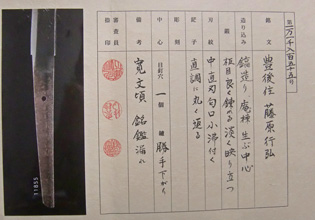 第一万一千八百五十五号
銘文
豊後住 藤原行弘
造り込み
鎬造り 庵棟 生ぶ中心
鍛
板目良く錬める 淡く映り立つ
刃紋
中直刃 匂口小沸付く
鋩子
直調に丸く返る
彫刻
中心
目釘穴 一個 鑢 勝手下がり
備考
寛文頃 銘鑑漏れ
審査員
捺印
11855